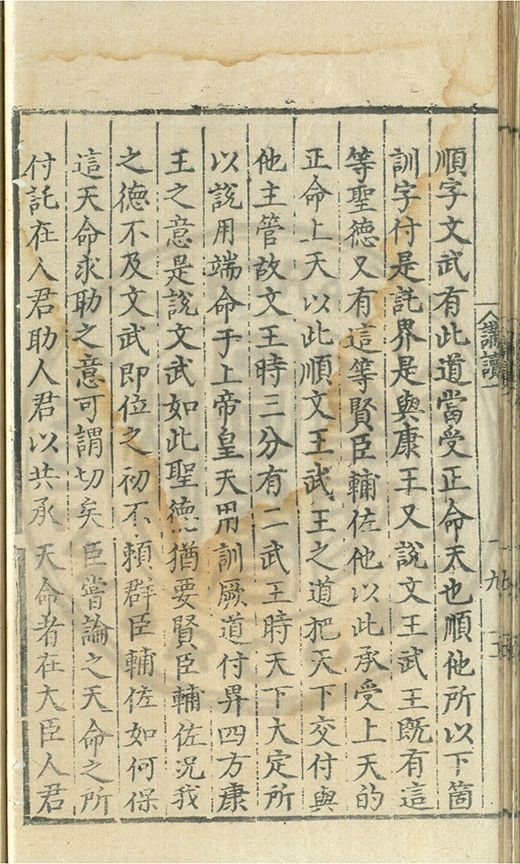 順字文武有此道當受正命天也順他所以下箇
訓字付是託界是與康王又說文王武王既有這
等聖德又有這等賢臣輔佐他以此承受上天的
正命上天以此順文王武王之道把天下交付與
他主管故文王時三分有二武王時天下大定所
以說用端命于上帝皇天用訓厥道付畀四方康
王之意是說文武如此聖德猶要賢臣輔佐况我
之德不及文武即位之初不賴群臣輔佐如何保
這天命求助之意可謂切矣臣嘗論之天命之所
付託在人君助人君以共承天命者在大臣人君
講讀一